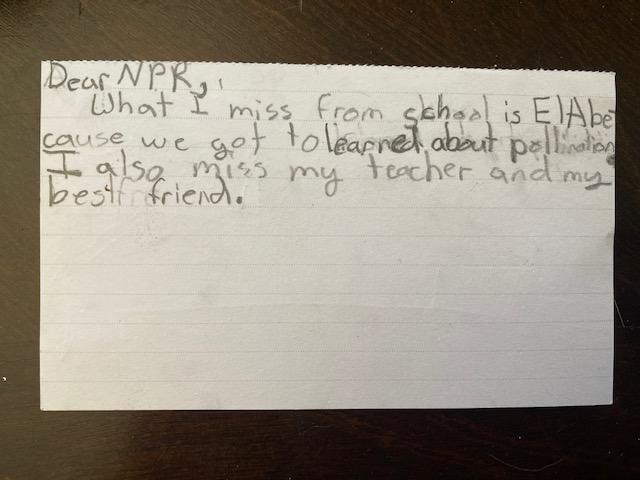 Dear NPR,
What I miss from school is ElAbe
cause we got to learned about pollination
I also miss my teacher and my
best friend.